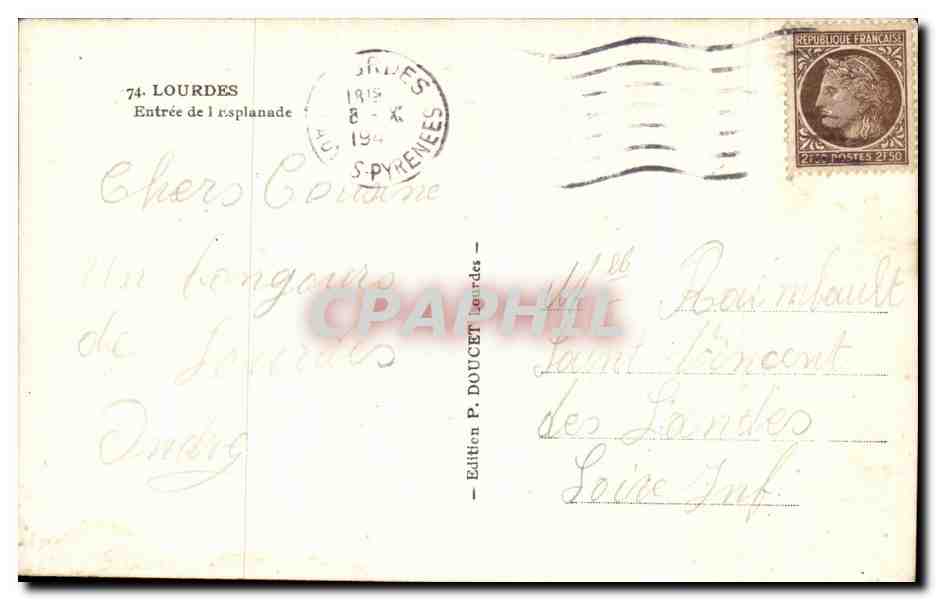 74. LOURDES
Entrée de l'Esplanade
LOURDES
18 15
8 - X
194
S-PYRENEES
REPUBLIQUE FRANÇAISE
2F50 POSTES 2F50
Chers Cousine
un bongours
de Lourdes
Melle Raimbault
Saint Vincent
des Landes
Loire Inf.
- Edition P. DOUCET Lourdes -
CPAPHIL